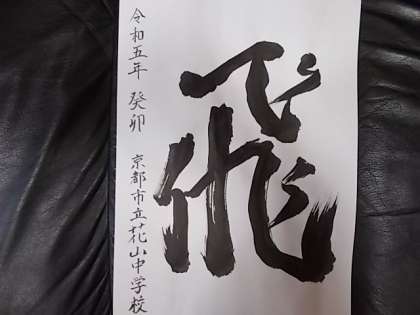 飛
令和五年 癸卯 京都市立花山中学校